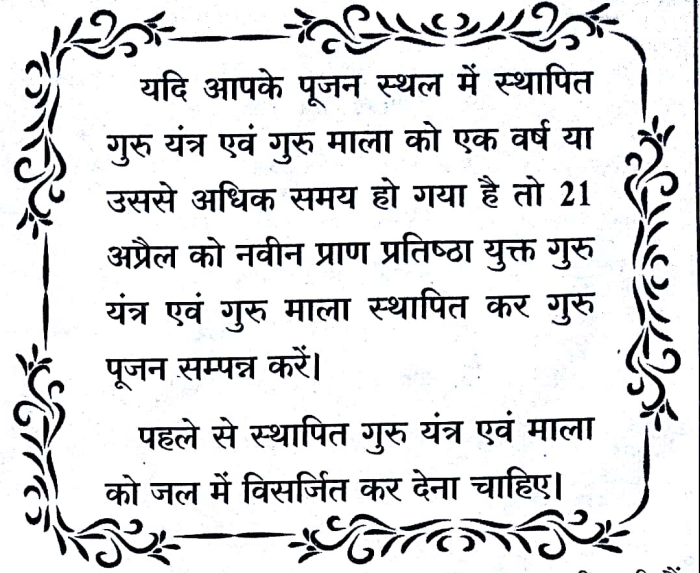 यदि आपके पूजन स्थल में स्थापित
गुरु यंत्र एवं गुरु माला को एक वर्ष या
उससे अधिक समय हो गया है तो 21
अप्रैल को नवीन प्राण प्रतिष्ठा युक्त गुरु
यंत्र एवं गुरु माला स्थापित कर गुरु
पूजन सम्पन्न करें।
पहले से स्थापित गुरु यंत्र एवं माला
को जल में विसर्जित कर देना चाहिए।